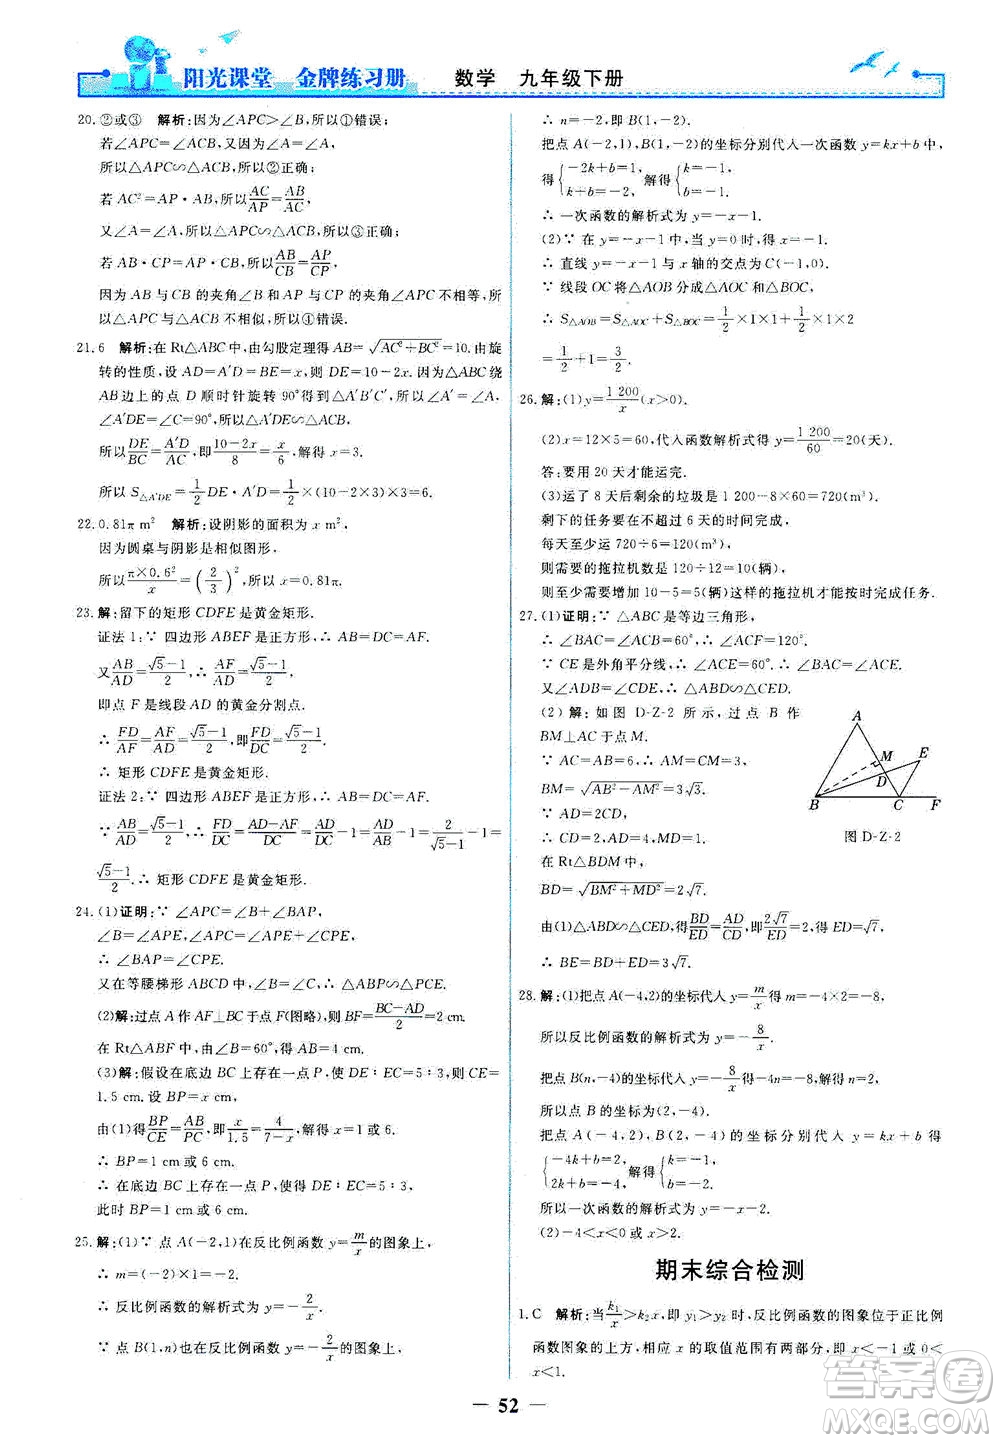 阳光课堂 金牌练习册 数学 九年级下册
20.②或③ 解析:因为∠APC>∠B,所以①错误;
若∠APC=∠ACB,又因为∠A=∠A,
所以△APC∽△ACB,所以②正确;
若 AC²=AP·AB,所以AC/AP=AB/AC,
又∠A=∠A,所以△APC∽△ACB,所以③正确;
若 AB·CP=AP·CB,所以AB/CB=AP/CP,
因为 AB 与 CB 的夹角∠B 和 AP 与 CP 的夹角∠APC 不相等,
所以△APC 与△ACB 不相似,所以④错误.
21.6 解析:在 Rt△ABC 中,由勾股定理得 AB=√(AC²+BC²)=10.由旋
转的性质,设 AD=A′D=BE=x,则 DE=10-2x.因为△ABC 绕
AB 边上的点 D 顺时针旋转 90°得到△A′B′C′,所以∠A′=∠A,
∠A′DE=∠C=90°,所以△A′DE∽△ACB,
所以DE/BC=A′D/AC,即(10-2x)/8=x/6,解得 x=3.
所以 S△A′DE=1/2DE·A′D=1/2×(10-2×3)×3=6.
22.0.81π m² 解析:设阴影的面积为 x m²,
因为圆桌与阴影是相似图形,
所以(π×0.6²)/x=(2/3)²,所以 x=0.81π.
23.解:留下的矩形 CDFE 是黄金矩形.
证法 1:∵ 四边形 ABEF 是正方形,∴ AB=DC=AF.
又AB/AD=(√5-1)/2,∴ AF/AD=(√5-1)/2,
即点 F 是线段 AD 的黄金分割点.
∴ FD/AF=AF/AD=(√5-1)/2,即FD/DC=(√5-1)/2.
∴ 矩形 CDFE 是黄金矩形.
证法 2:∵ 四边形 ABEF 是正方形,∴ AB=DC=AF.
∵ AB/AD=(√5-1)/2,∴ FD/DC=(AD-AF)/DC=AD/DC-1=AD/AB-1=2/(√5-1)-1=
(√5-1)/2.∴ 矩形 CDFE 是黄金矩形.
24.(1)证明:∵ ∠APC=∠B+∠BAP,
∠B=∠APE,∠APC=∠APE+∠CPE,
∴ ∠BAP=∠CPE.
又在等腰梯形 ABCD 中,∠B=∠C,∴ △ABP∽△PCE.
(2)解:过点 A 作 AF⊥BC 于点 F(图略),则 BF=(BC-AD)/2=2 cm.
在 Rt△ABF 中,∵ ∠B=60°,∴ AB=4 cm.
(3)解:假设在底边 BC 上存在一点 P,使 DE∶EC=5∶3,则 CE=
1.5 cm.设 BP=x cm,
由(1)得BP/CE=AB/PC,即x/1.5=4/(7-x),解得 x=1 或 6.
∴ BP=1 cm 或 6 cm.
∴ 在底边 BC 上存在一点 P,使 DE∶EC=5∶3,
此时 BP=1 cm 或 6 cm.
25.解:(1)∵ 点 A(-2,1)在反比例函数 y=m/x的图象上,
∴ m=(-2)×1=-2.
∴ 反比例函数的解析式为 y=-2/x.
∵ 点 B(1,n)也在反比例函数 y=-2/x的图象上,
∴ n=-2,即 B(1,-2).
把点 A(-2,1),B(1,-2)的坐标分别代入一次函数 y=kx+b 中,
得{-2k+b=1, k+b=-2, 解得{k=-1, b=-1.
∴ 一次函数的解析式为 y=-x-1.
(2)∵ 在 y=-x-1 中,当 y=0 时,得 x=-1.
∴ 直线 y=-x-1 与 x 轴的交点为 C(-1,0).
∵ 线段 OC 将△AOB 分成△AOC 和△BOC,
∴ S△AOB=S△AOC+S△BOC=1/2×1×1+1/2×1×2
=1/2+1=3/2.
26.解:(1)y=1 200/x(x>0).
(2)x=12×5=60,代入函数解析式得 y=1 200/60=20(天).
答:要用 20 天才能运完.
(3)运了 8 天后剩余的垃圾是 1 200-8×60=720(m³),
剩下的任务要在不超过 6 天的时间完成,
每天至少运 720÷6=120(m³),
则需要的拖拉机数是 120÷12=10(辆),
则至少需要增加 10-5=5(辆)这样的拖拉机才能按时完成.
27.(1)证明:∵ △ABC 是等边三角形,
∴ ∠BAC=∠ACB=60°,∴ ∠ACF=120°.
∵ CE 是外角平分线,∴ ∠ACE=60°.∴ ∠BAC=∠ACE.
又∠ADB=∠CDE,∴ △ABD∽△CED.
(2) 解: 如 图 D-Z-2 所 示, 过 点 B 作
BM⊥AC 于点 M.
∵ AC=AB=6,∴ AM=CM=3.
BM=√(6²-3²)=3√3.
∵ AD=2CD,
∴ CD=2,AD=4,MD=1.
在 Rt△BDM 中,
BD=√(BM²+MD²)=2√7.
由(1)△ABD∽△CED,得BD/ED=AD/CD,即2√7/ED=2,得 ED=√7.
∴ BE=BD+ED=3√7.
A
M
E
D
B
C
F
图 D-Z-2
28.解:(1)把点 A(-4,2)的坐标代入 y=m/x得 m=-4×2=-8,
所以反比例函数的解析式为 y=-8/x.
把点 B(n,-4)的坐标代入 y=-8/x得-4n=-8,解得 n=2,
所以点 B 的坐标为(2,-4).
把点 A(-4,2),B(2,-4)的坐标分别代入 y=kx+b 得
{-4k+b=2, 2k+b=-4, 解得{k=-1, b=-2,
所以一次函数的解析式为 y=-x-2.
(2)-4<x<0 或 x>2.
期末综合检测
1.C 解析:当k₁/x>k₂x,即 y₁>y₂ 时,反比例函数的图象位于正比例
函数图象的上方,相应 x 的取值范围有两部分,即 x<-1 或 0<
x<1.
— 52 —
答案圈
MXQE.COM